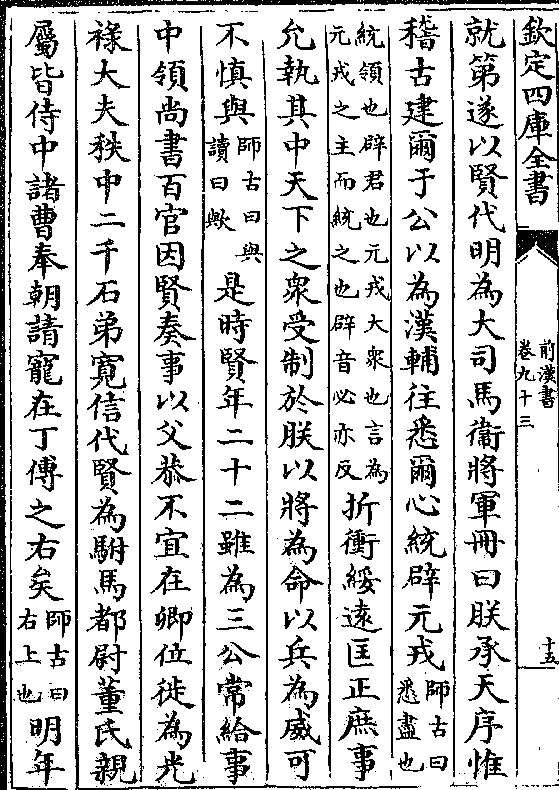 欽定四庫全書
前漢書
卷九十三
十五
就第遂以賢代明為大司馬衞將軍冊曰朕承天序惟
稽古建爾于公以為漢輔往悉爾心統辟元戎師古曰悉盡也
統領也辟君也元戎大衆也言為元戎之主而統之也辟音必亦反折衝綏遠匡正庶事
允執其中天下之衆受制於朕以將為命以兵為威可
不慎與師古曰與讀曰歟是時賢年二十二雖為三公常給事
中領尚書百官因賢奏事以父恭不宜在卿位徙為光
祿大夫秩中二千石弟寛信代賢為駙馬都尉董氏親
屬皆侍中諸曹奉朝請寵在丁傅之右矣師古曰右上也明年